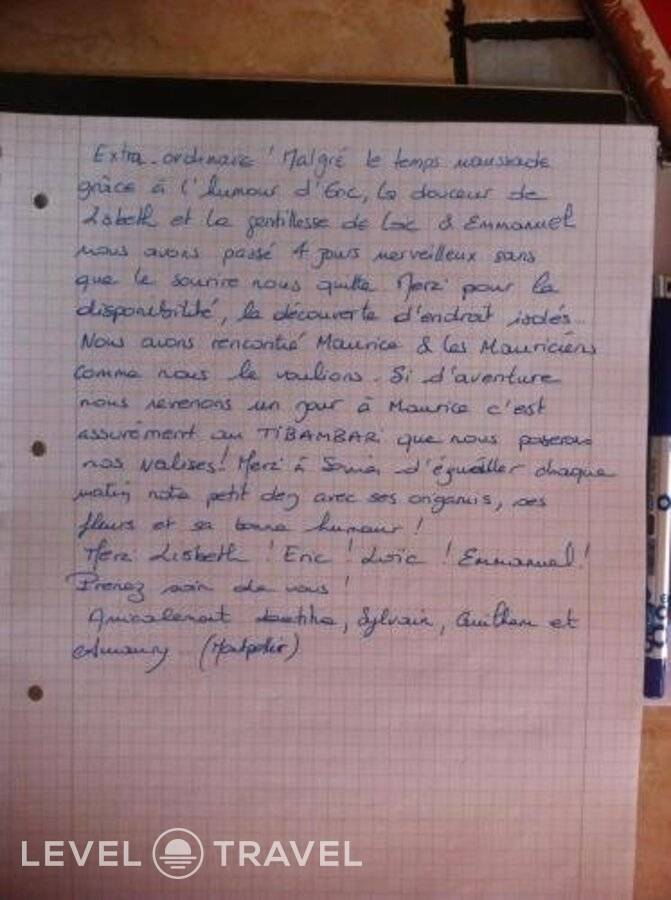 Extra-ordinaire ! Malgré le temps maussade
grâce à l'humour d'Eric, la douceur de
Lisbeth et la gentillesse de Loïc & Emmanuel
nous avons passé 4 jours merveilleux sans
que le sourire nous quitte Merci pour la
disponibilité, la découverte d'endroit isolés..
Nous avons rencontré Maurice & les Mauriciens
comme nous le voulions. Si d'aventure
nous revenons un jour à Maurice c'est
assurément au TIBAMBAR que nous poserons
nos valises! Merci à d'égueiller chaque
matin notre petit dej avec ses origamis, ses
fleurs et sa bonne humeur !
Merci Lisbeth ! Eric ! Loïc ! Emmanuel !
Prenez soin de vous !
Amicalement Laetitia, Sylvain, Guilhem et
Amaury (Montpellier)
LEVEL TRAVEL